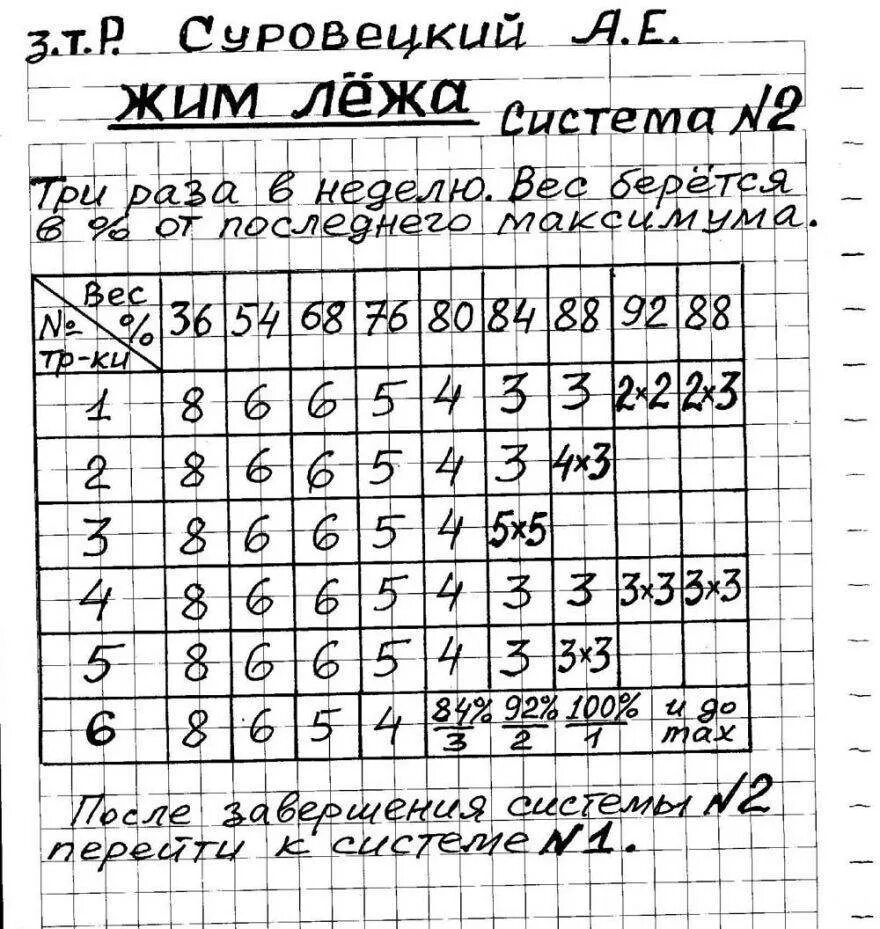 з.т.Р. Суровецкий А.Е.
ЖИМ ЛЁЖА Система №2
Три раза в неделю. Вес берётся
в % от последнего максимума.
Вес % № тр-ки 36 54 68 76 80 84 88 92 88
1 8 6 6 5 4 3 3 2×2 2×3
2 8 6 6 5 4 3 4×3
3 8 6 6 5 4 5×5
4 8 6 6 5 4 3 3 3×3 3×3
5 8 6 6 5 4 3 3×3
6 8 6 5 4 84%/3 92%/2 100%/1 и до max
После завершения системы №2
перейти к системе №1.